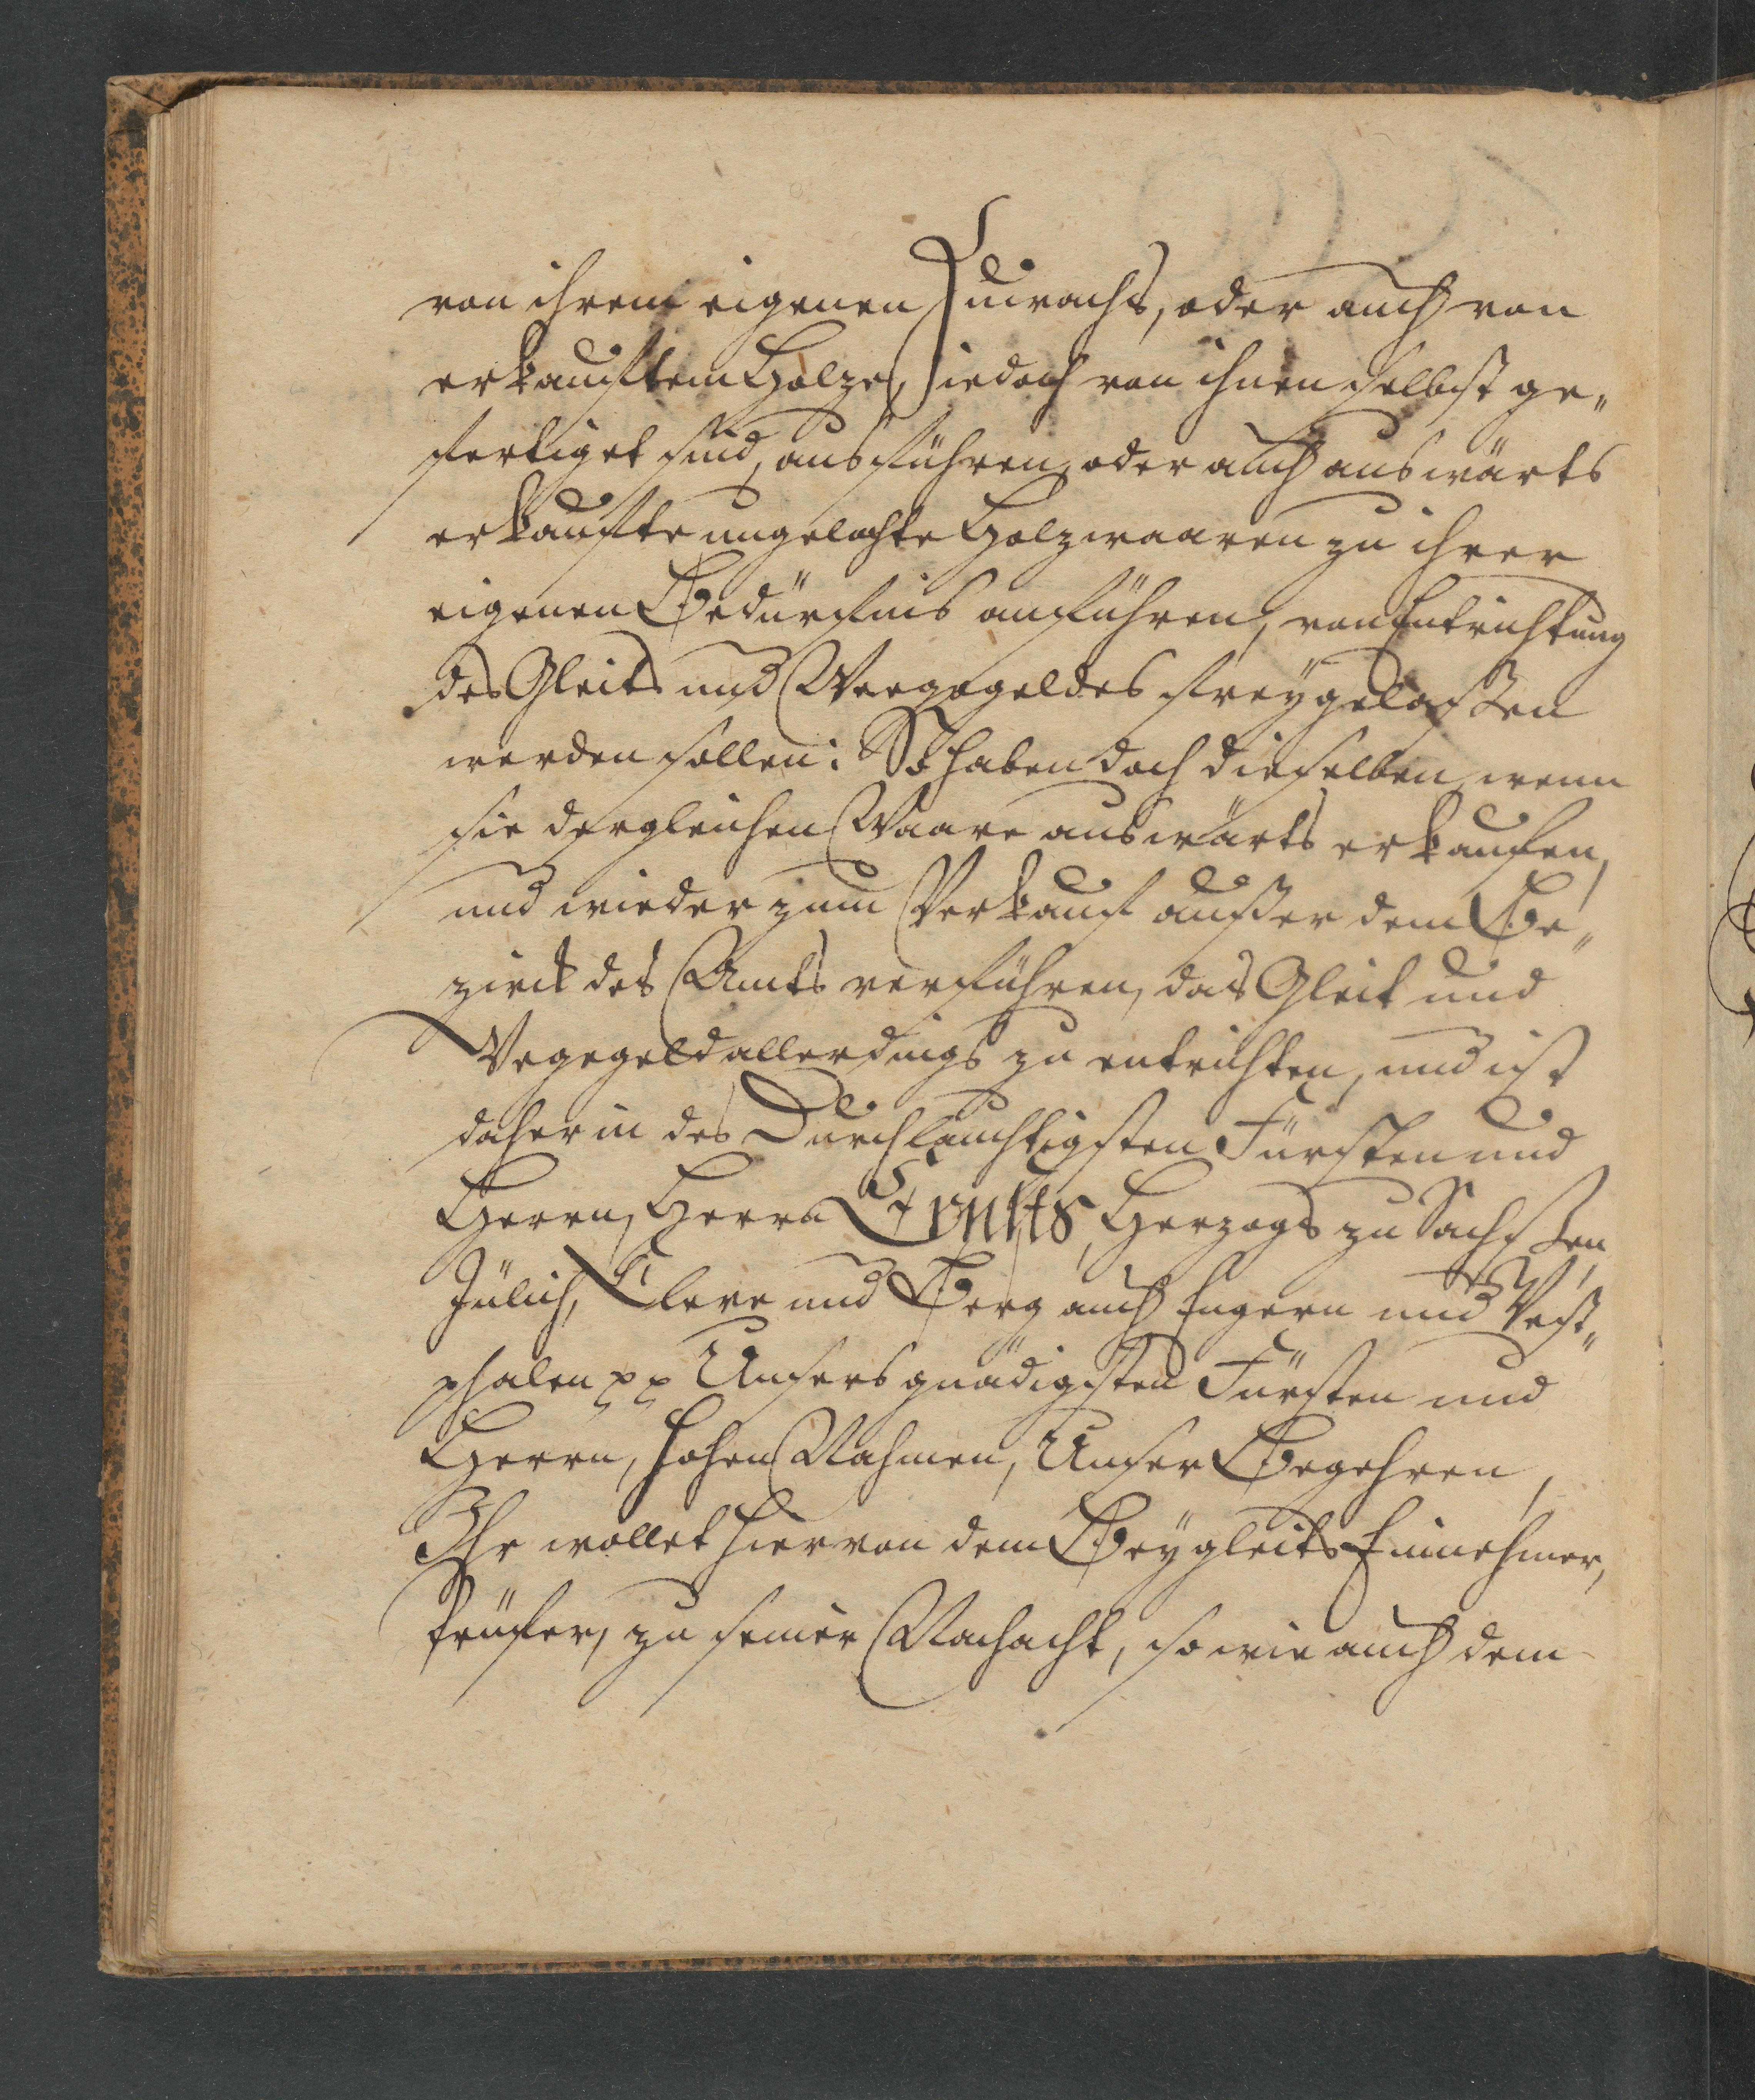 von ihrem eigenen Zuwachs, oder auch von
erkauftem Holze, jedoch von ihnen selbst ge„
fertiget sind, ausführen, oder auch auswärts
erkaufte ungelochte Holzwaaren zu ihrer
eigenen Bedürfnis anführen, von Entrichtung
des Gleits und Weegegeldes freygelaßen
werden sollen: So haben doch dieselben, wenn
sie dergleichen Waare auswärts erkaufen,
und wieder zum Verkauf außer dem Be„
zirck des Amts verführen, das Gleit und
Wegegeld allerdings zu entrichten, und ist
daher in des Durchlauchtigsten Fürsten und
Herrn, Herrn Ernsts, Herzogs zu Sachßen,
Jülich, Cleve und Berg auch Engern und West„
phalen pp Unsers gnädigsten Fürsten und
Herrn, hohen Nahmen, Unser Begehren,
Ihr wollet hiervon dem Beygleits Einnehmer,
zu seiner Nachacht, so wie auch dem